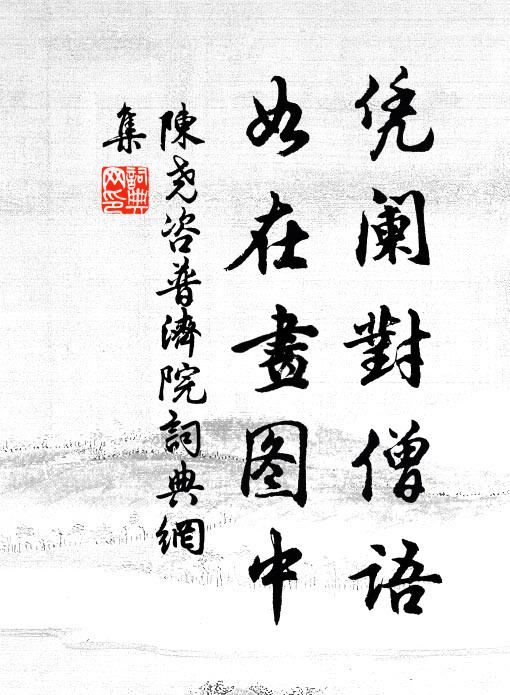 凭阑對僧語
如在畫图中
陳尧咨普濟院詞典網
集
詞典網印